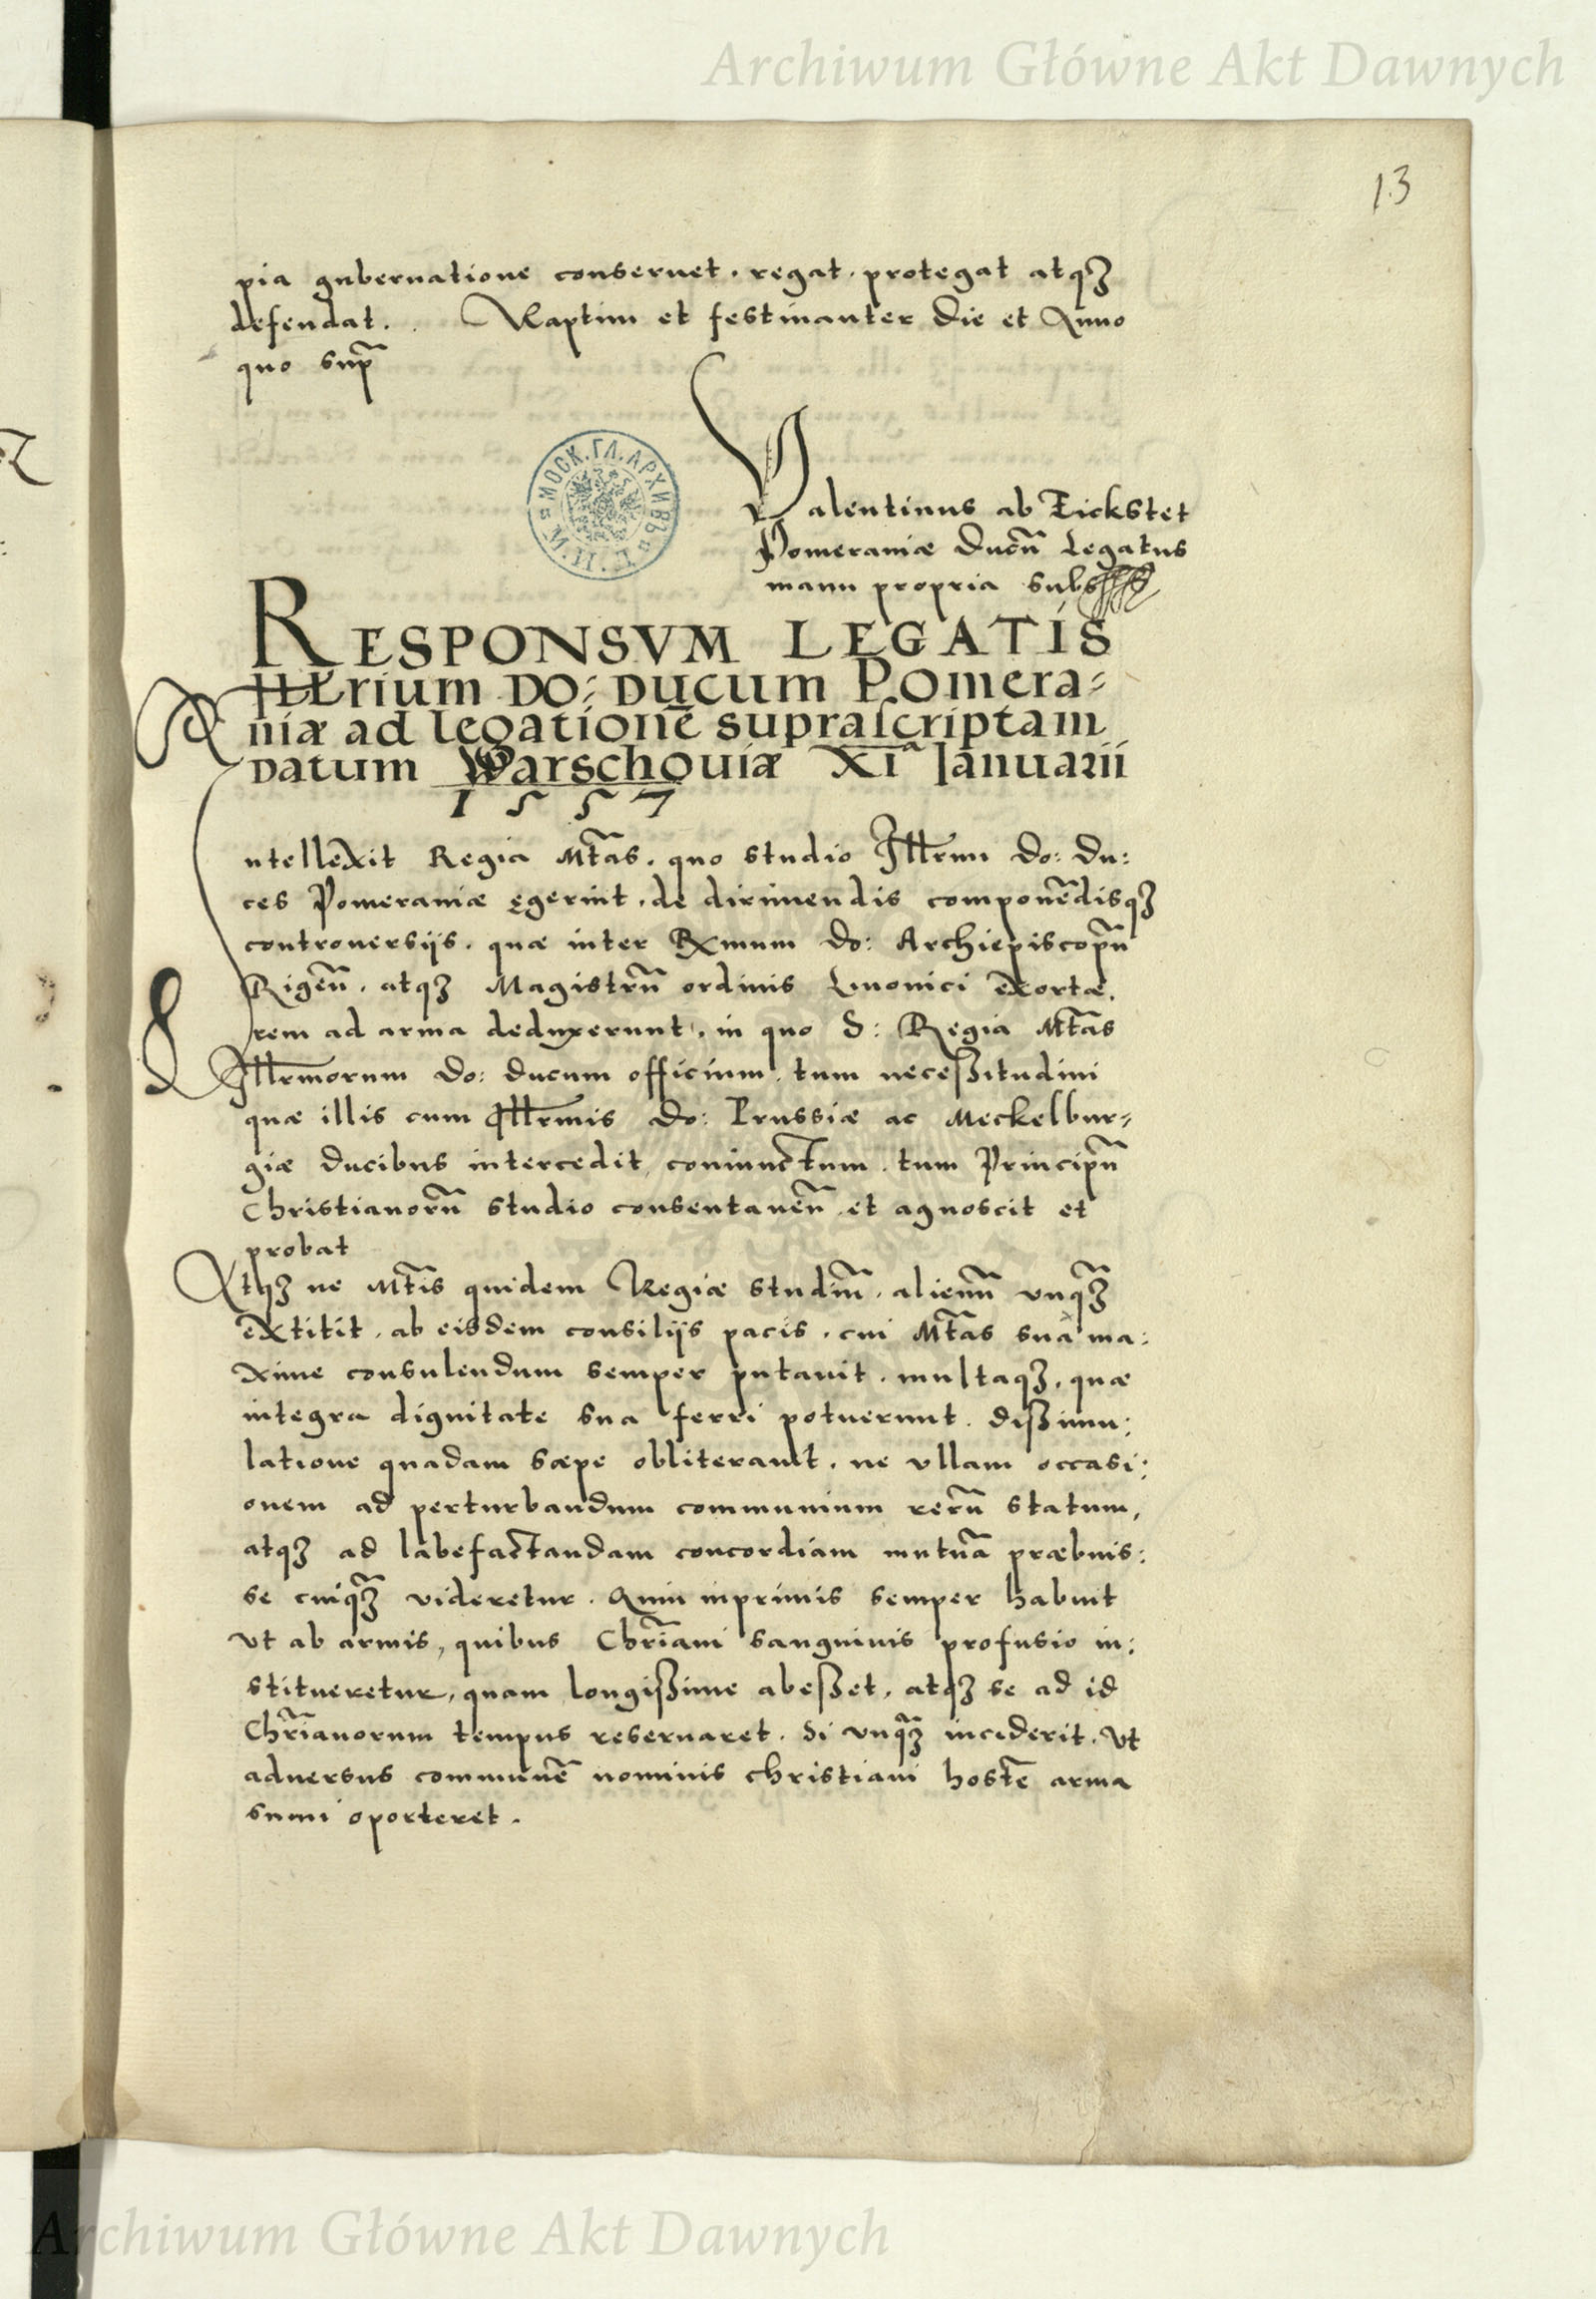 Archiwum Główne Akt Dawnych
13
pia gubernatione conseruet. regat. protegat atqȝ
defendat. Raptim et festinanter Die et Anno
quo supra͂
МОСК.ГЛ.АРХИВЪ
Valentinus ab Eickstet
Pomeraniæ Ducu͂ Legatus
manu propria subs
RESPONSVM LEGATIS
Illrium DO: Ducum Pomera=
niæ ad legationē supraſcriptam
Datum Warschouiæ XIa Ianuarii
1557
Intellexit Regia Mta͂s. quo studio Illrmi Do: Du:
ces Pomeraniæ ęgerint. de dirimendis compone͂disqȝ
controuersijs. quæ inter Rxmum Do: Archiepiscopu͂
Rigen͂. atqȝ Magistru͂ ordinis Liuonici exortæ.
rem ad arma deduxerunt. in quo S: Regia Mta͂s
Illrmorum Do: Ducum officium. tum neceßitudini
quæ illis cum Illrmis Do: Prussiæ ac Meckelbur=
giæ Ducibus intercedit, coniunctum. tum Principu͂
Christianoru͂ studio consentaneu͂ et agnoscit et
probat
Atqȝ ne Mta͂tis quidem Regiæ studiu͂. alienu͂ vnqȝ͂
extitit. ab eisdem consilijs pacis. cui Mta͂s sua ma:
xime consulendum semper putauit. multaqȝ. quæ
integra dignitate sua ferri potuerunt. dißimu:
latione quadam sæpe obliterauit. ne vllam occasi:
onem ad perturbandum communium reru͂ statum,
atqȝ ad labefactandam concordiam mutua͂ præbuis:
se cuiqȝ͂ videretur. Quin inprimis semper habuit
vt ab armis, quibus Chr͂iani sanguinis profusio in:
stitueretur, quam longißime abeßet, atqȝ se ad id
Chr͂ianorum tempus reseruaret. si vnqȝ͂ inciderit. vt
aduersus commune͂ nominis christiani hoste͂ arma
sumi oporteret.
Archiwum Główne Akt Dawnych